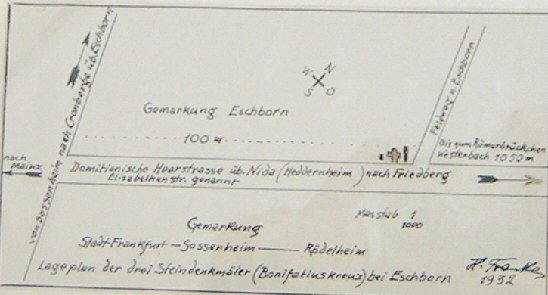 von Sossenheim nach Cronberg üb. Eschborn
W N
S O
Gemarkung Eschborn
100 m
Feldweg n. Eschborn
Bis zum Römerbrückchen
Westerbach 1050 m
nach
Mainz
Domitianische Heerstrasse üb. Nida (Heddernheim) nach Friedberg
Elisabethenstr. genannt
Masstab 1
1000
Gemarkung
Stadt Frankfurt — Sossenheim — Rödelheim
Lageplan der drei Steindenkmäler (Bonifatiuskreuz) bei Eschborn
1932